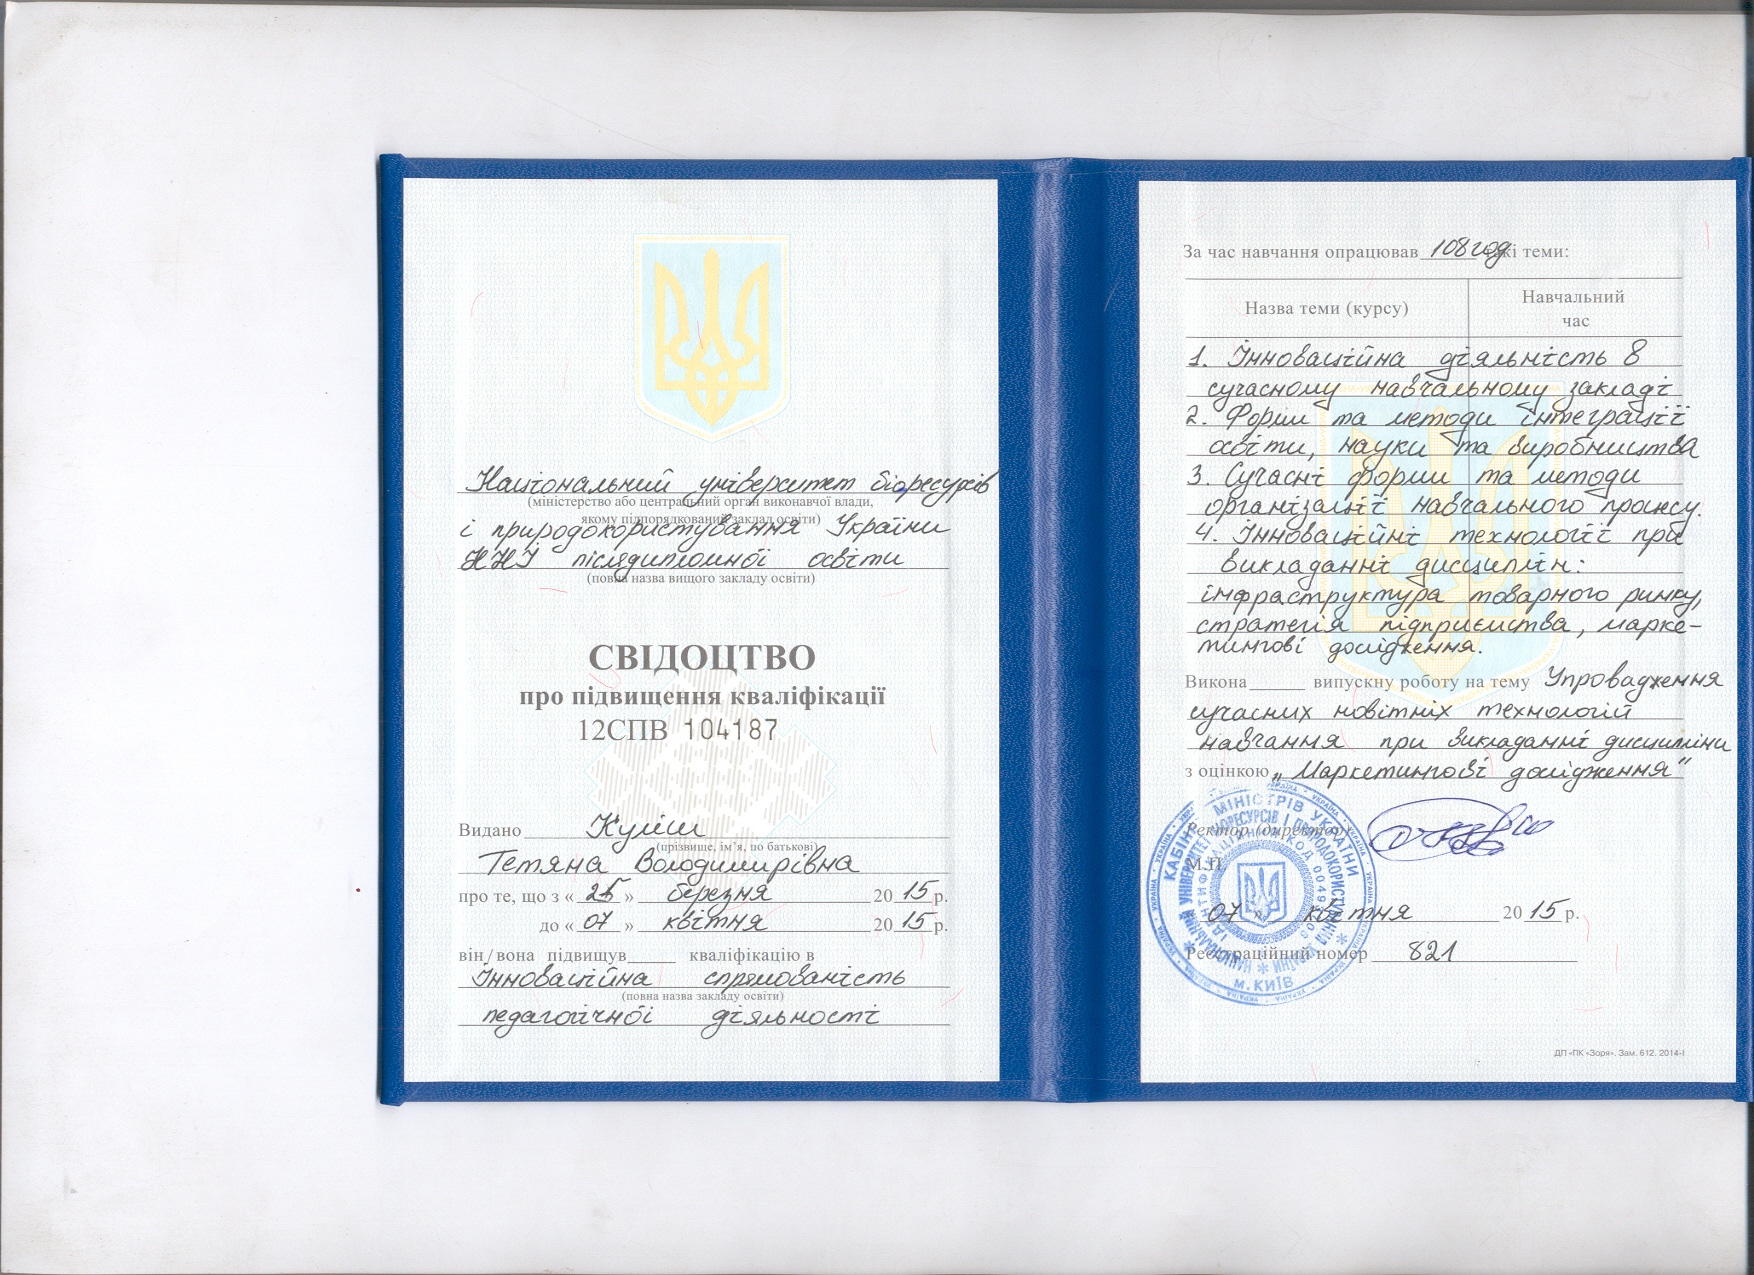 Національний університет біоресурсів
(міністерство або центральний орган виконавчої влади,
якому підпорядкований заклад освіти)
і природокористування України
ННІ післядипломної освіти
(повна назва вищого закладу освіти)
СВІДОЦТВО
про підвищення кваліфікації
12СПВ 104187
Видано Куліш
(прізвище, ім'я, по батькові)
Тетяна Володимирівна
про те, що з « » березня 2015 р.
до « 07 » квітня 2015 р.
він/вона підвищув_____ кваліфікацію в
Інноваційна спрямованість
(повна назва закладу освіти)
педагогічної діяльності
За час навчання опрацював 108 год такі теми:
Назва теми (курсу)
Навчальний
час
1. Інноваційна діяльність в
сучасному навчальному закладі
2. Форми та методи інтеграції
освіти, науки та виробництва
3. Сучасні форми та методи
організації навчального процесу.
4. Інноваційні технології при
викладанні дисциплін:
інфраструктура товарного ринку,
стратегія підприємства, марке-
тингові дослідження.
Викона_____ випускну роботу на тему Упровадження
сучасних новітніх технологій
навчання при викладанні дисципліни
з оцінкою „Маркетингові дослідження"
Ректор (директор)
М.П.
07 » квітня 2015 р.
Реєстраційний номер 821
КАБІНЕТ МІНІСТРІВ УКРАЇНИ
м.КИЇВ
ДП «ПК «Зоря». Зам. 612. 2014-І